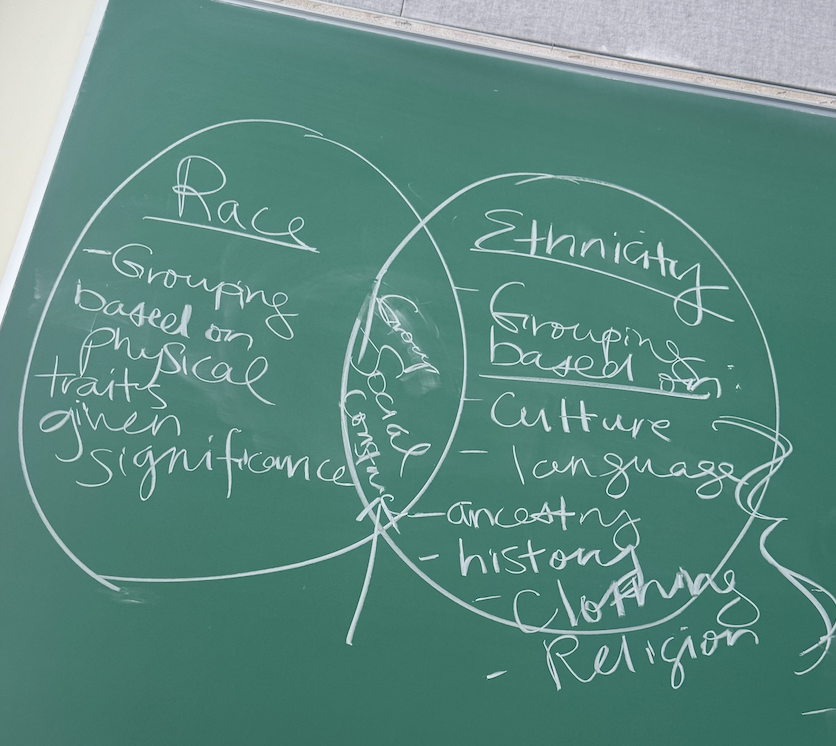 Race
-Grouping
based on
physical
traits
given
significance
Group
Social
Construct
Ethnicity
- Grouping
based on:
- Culture
- language
- ancestry
- history
- Clothing
- Religion